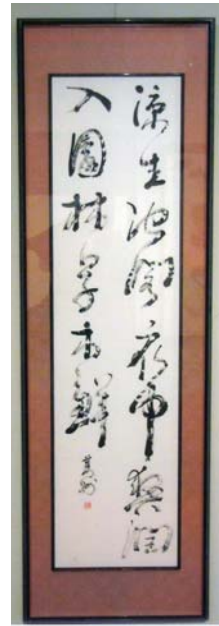 涼生池閣衣巾爽潤
入園林草木鮮